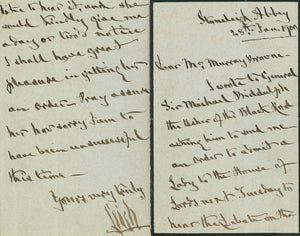 Stoneleigh Abbey
28th Jan. 1901
Dear Mrs Murray Browne
I wrote to General
Sir Michael Biddulph
the Usher of the Black Rod
asking him to send me
an order to admit a
Lady to the House of
Lords next Tuesday to
hear the debate on the
like to hear it, and she
would kindly give me
a day or two's notice
I shall have great
pleasure in getting her
an order. Pray assure
her how sorry I am to
have been unsuccessful
this time —
Yours very truly
Leigh